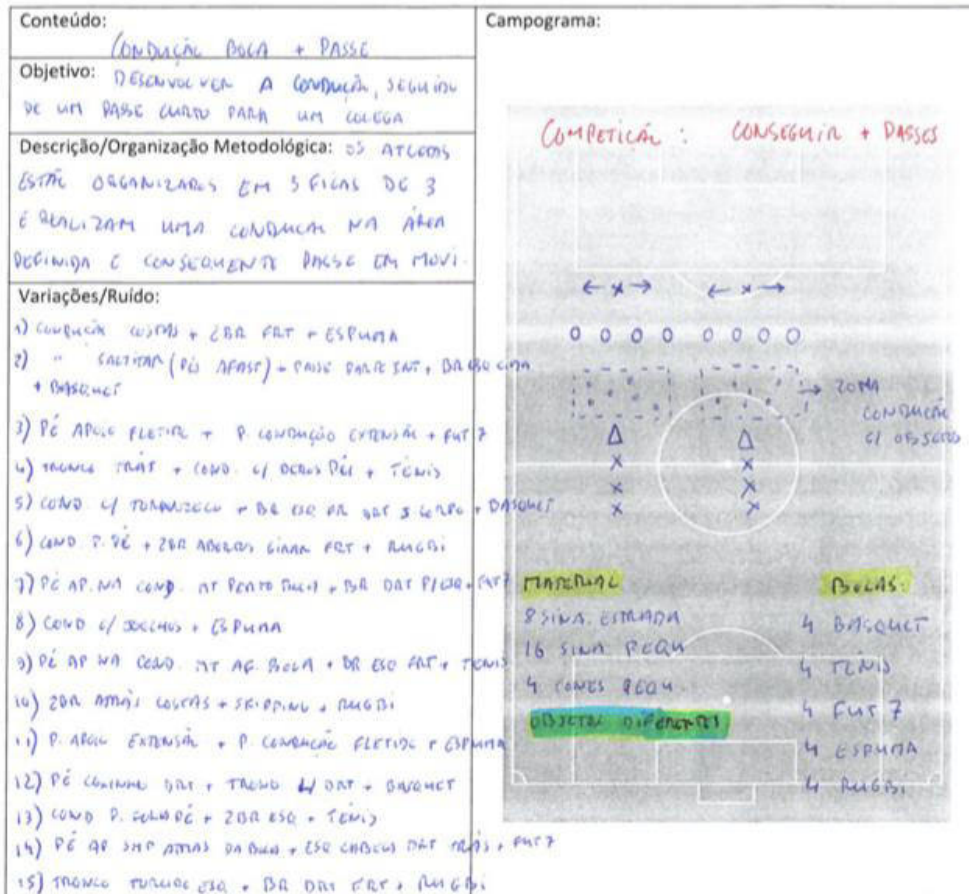 Conteúdo:
CONDUÇÃO BOLA + PASSE
Objetivo: DESENVOLVER A CONDUÇÃO, SEGUIDO
DE UM PASSE CURTO PARA UM COLEGA
Descrição/Organização Metodológica: OS ATLETAS
ESTÃO ORGANIZADOS EM 3 FILAS DE 3
E REALIZAM UMA CONDUÇÃO NA ÁREA
DEFINIDA E CONSEQUENTE PASSE EM MOVI.
Variações/Ruído:
1) CONDUÇÃO COSTAS + 2BR FRT + ESPUMA
2) " SALTITAR (PÉS AFAST) + PASSE PARTE INT + BR ESQ CIMA
+ BASQUET
3) PÉ APOIO FLETIDO + P. CONDUÇÃO EXTENSÃO + FUT 7
4) TRONCO TRÁS + COND. C/ DEDOS PÉS + TÉNIS
5) COND C/ TORNOZELO + BR ESQ FR DRT CORPO + BASQUET
6) COND P. PÉ + 2BR ABERTOS GIRAR FRT + RUGBI
7) PÉ AP. NA COND. MT PERTO BOLA + BR DRT + FUT 7
8) COND C/ JOELHOS + ESPUMA
9) PÉ AP NA COND. MT AF. BOLA + BR ESQ FRT + TÉNIS
10) 2BR ATRÁS COSTAS + SKIPPING + RUGBI
11) P. APOIO EXTENSÃO + P. CONDUÇÃO FLETIDO + ESPUMA
12) PÉ COXINHO DRT + TRONCO DRT + BASQUET
13) COND P. SOLA PÉ + 2BR ESQ + TÉNIS
14) PÉ AP SMP ATRÁS DA BOLA + ESQ CABEÇA DRT TRÁS + FUT 7
15) TRONCO TORCIDO ESQ + BR DRT FRT + RUGBI
Campograma:
COMPETIÇÃO: CONSEGUIR + PASSES
ZONA
CONDUÇÃO
MATERIAL
8 SINA. ESTRADA
16 SINA PEQU
4 CONES PEQU
OBJETOS DIFERENTES
BOLAS:
4 BASQUET
4 TÉNIS
4 FUT 7
4 ESPUMA
4 RUGBI